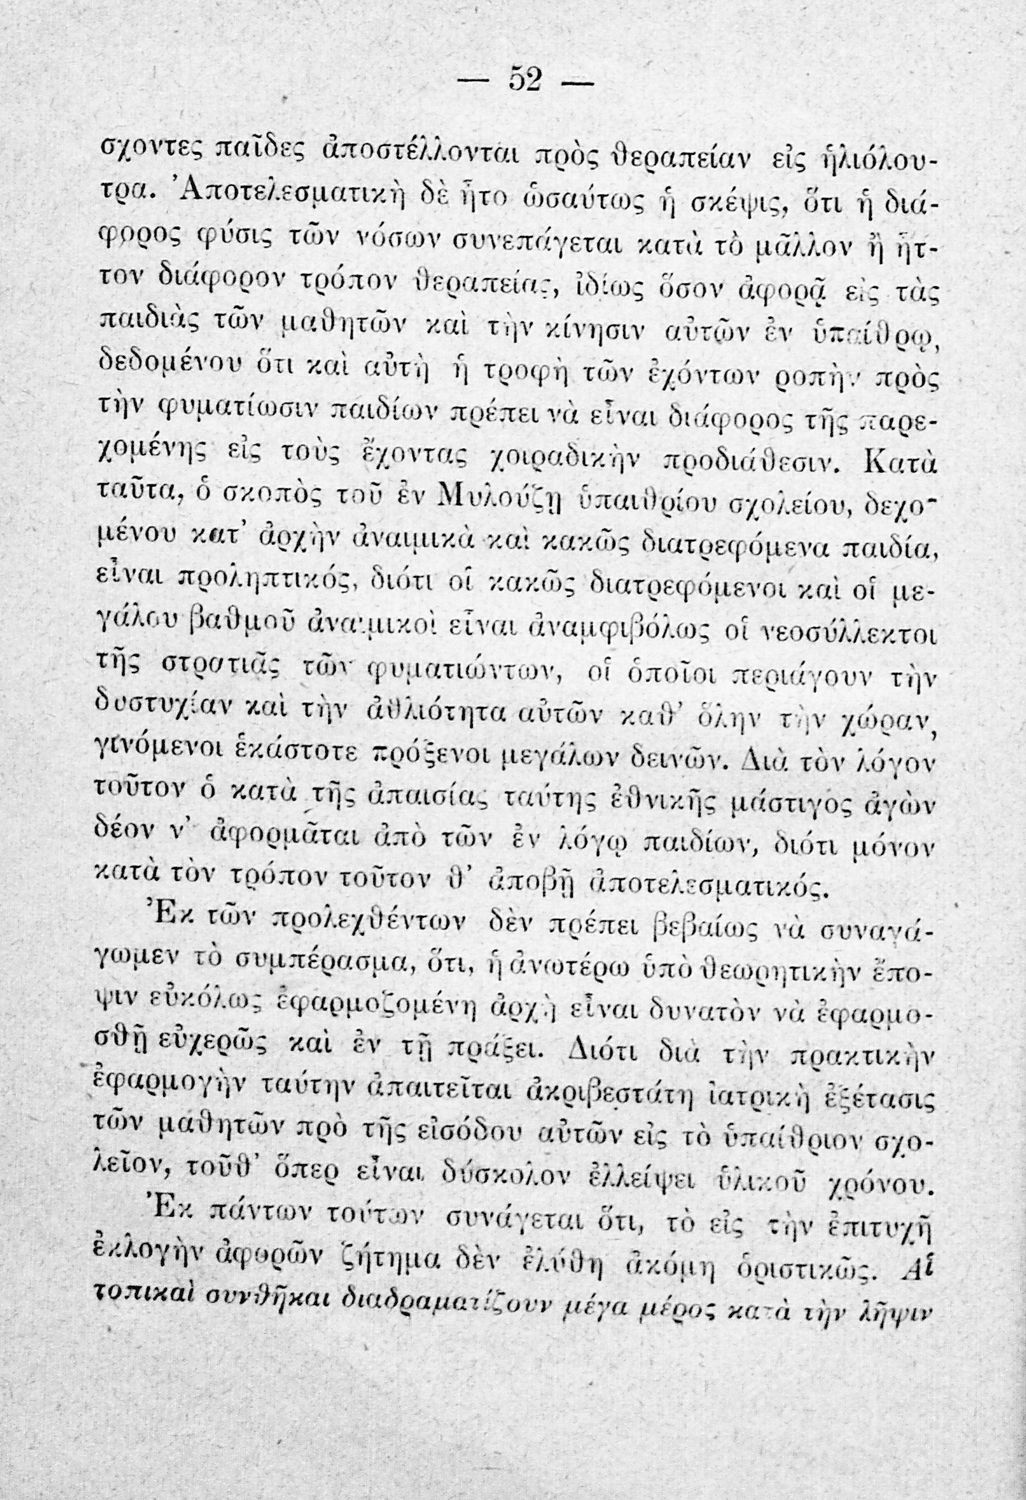 — 52 —
σχοντες παῖδες ἀποστέλλονται πρὸς θεραπείαν εἰς ἡλιόλου-
τρα. Ἀποτελεσματικὴ δὲ ἦτο ὡσαύτως ἡ σκέψις, ὅτι ἡ διά-
φορος φύσις τῶν νόσων συνεπάγεται κατὰ τὸ μᾶλλον ἢ ἧτ-
τον διάφορον τρόπον θεραπείας, ἰδίως ὅσον ἀφορᾷ εἰς τὰς
παιδιὰς τῶν μαθητῶν καὶ τὴν κίνησιν αὐτῶν ἐν ὑπαίθρῳ,
δεδομένου ὅτι καὶ αὐτὴ ἡ τροφὴ τῶν ἐχόντων ροπὴν πρὸς
τὴν φυματίωσιν παιδίων πρέπει νὰ εἶναι διάφορος τῆς παρε-
χομένης εἰς τοὺς ἔχοντας χοιραδικὴν προδιάθεσιν. Κατὰ
ταῦτα, ὁ σκοπὸς τοῦ ἐν Μυλούζῃ ὑπαιθρίου σχολείου, δεχο-
μένου κατ’ ἀρχὴν ἀναιμικὰ καὶ κακῶς διατρεφόμενα παιδία,
εἶναι προληπτικός, διότι οἱ κακῶς διατρεφόμενοι καὶ οἱ με-
γάλου βαθμοῦ ἀναιμικοὶ εἶναι ἀναμφιβόλως οἱ νεοσύλλεκτοι
τῆς στρατιᾶς τῶν φυματιώντων, οἱ ὁποῖοι περιάγουν τὴν
δυστυχίαν καὶ τὴν ἀθλιότητα αὐτῶν καθ’ ὅλην τὴν χώραν,
γινόμενοι ἑκάστοτε πρόξενοι μεγάλων δεινῶν. Διὰ τὸν λόγον
τοῦτον ὁ κατὰ τῆς ἀπαισίας ταύτης ἐθνικῆς μάστιγος ἀγὼν
δέον ν’ ἀφορμᾶται ἀπὸ τῶν ἐν λόγῳ παιδίων, διότι μόνον
κατὰ τὸν τρόπον τοῦτον θ’ ἀποβῇ ἀποτελεσματικός.
Ἐκ τῶν προλεχθέντων δὲν πρέπει βεβαίως νὰ συναγά-
γωμεν τὸ συμπέρασμα, ὅτι, ἡ ἀνωτέρω ὑπὸ θεωρητικὴν ἔπο-
ψιν εὐκόλως ἐφαρμοζομένη ἀρχὴ εἶναι δυνατὸν νὰ ἐφαρμο-
σθῇ εὐχερῶς καὶ ἐν τῇ πράξει. Διότι διὰ τὴν πρακτικὴν
ἐφαρμογὴν ταύτην ἀπαιτεῖται ἀκριβεστάτη ἰατρικὴ ἐξέτασις
τῶν μαθητῶν πρὸ τῆς εἰσόδου αὐτῶν εἰς τὸ ὑπαίθριον σχο-
λεῖον, τοῦθ’ ὅπερ εἶναι δύσκολον ἐλλείψει ὑλικοῦ χρόνου.
Ἐκ πάντων τούτων συνάγεται ὅτι, τὸ εἰς τὴν ἐπιτυχῆ
ἐκλογὴν ἀφορῶν ζήτημα δὲν ἐλύθη ἀκόμη ὁριστικῶς. Αἱ
τοπικαὶ συνθῆκαι διαδραματίζουν μέγα μέρος κατὰ τὴν λῆψιν